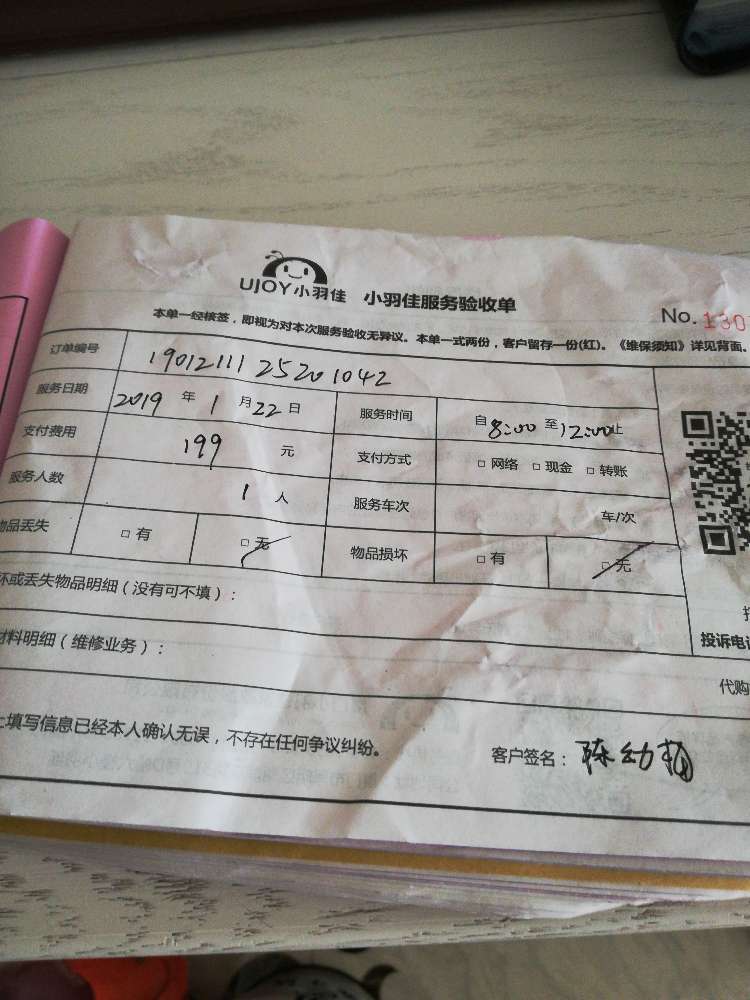 UJOY小羽佳 小羽佳服务验收单
No. 130
本单一经核签，即视为对本次服务验收无异议。本单一式两份，客户留存一份(红)。《维保须知》详见背面。
订单编号 19012111 25201042
服务日期 2019 年 1 月 22 日 服务时间 自 8:00 至 12:00 止
支付费用 199 元 支付方式 □ 网络 □ 现金 □ 转账
服务人数 1 人 服务车次 车/次
物品丢失 □ 有 □ 无 物品损坏 □ 有 □ 无
坏或丢失物品明细（没有可不填）：
投诉电话
材料明细（维修业务）：
代购
上填写信息已经本人确认无误，不存在任何争议纠纷。 客户签名：陈幼